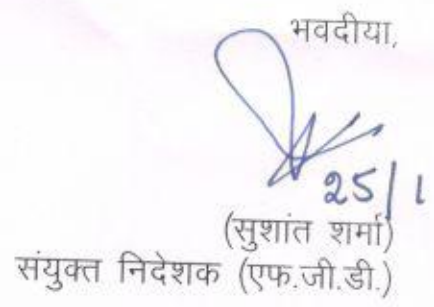 भवदीया,
25/1
(सुशांत शर्मा)
संयुक्त निदेशक (एफ.जी.डी.)